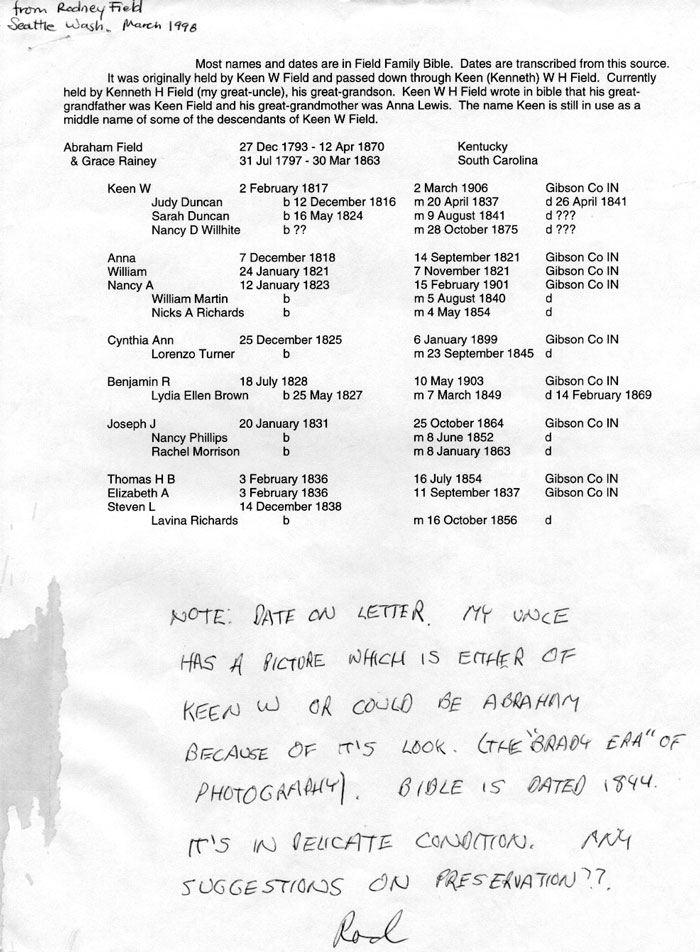 from Rodney Field
Seattle Wash. March 1998
Most names and dates are in Field Family Bible. Dates are transcribed from this source.
It was originally held by Keen W Field and passed down through Keen (Kenneth) W H Field. Currently
held by Kenneth H Field (my great-uncle), his great-grandson. Keen W H Field wrote in bible that his great-
grandfather was Keen Field and his great-grandmother was Anna Lewis. The name Keen is still in use as a
middle name of some of the descendants of Keen W Field.
Abraham Field 27 Dec 1793 - 12 Apr 1870 Kentucky
& Grace Rainey 31 Jul 1797 - 30 Mar 1863 South Carolina
Keen W 2 February 1817 2 March 1906 Gibson Co IN
Judy Duncan b 12 December 1816 m 20 April 1837 d 26 April 1841
Sarah Duncan b 16 May 1824 m 9 August 1841 d ???
Nancy D Willhite b ?? m 28 October 1875 d ???
Anna 7 December 1818 14 September 1821 Gibson Co IN
William 24 January 1821 7 November 1821 Gibson Co IN
Nancy A 12 January 1823 15 February 1901 Gibson Co IN
William Martin b m 5 August 1840 d
Nicks A Richards b m 4 May 1854 d
Cynthia Ann 25 December 1825 6 January 1899 Gibson Co IN
Lorenzo Turner b m 23 September 1845 d
Benjamin R 18 July 1828 10 May 1903 Gibson Co IN
Lydia Ellen Brown b 25 May 1827 m 7 March 1849 d 14 February 1869
Joseph J 20 January 1831 25 October 1864 Gibson Co IN
Nancy Phillips b m 8 June 1852 d
Rachel Morrison b m 8 January 1863 d
Thomas H B 3 February 1836 16 July 1854 Gibson Co IN
Elizabeth A 3 February 1836 11 September 1837 Gibson Co IN
Steven L 14 December 1838
Lavina Richards b m 16 October 1856 d
NOTE: DATE ON LETTER. MY UNCE
HAS A PICTURE WHICH IS EITHER OF
KEEN W OR COULD BE ABRAHAM
BECAUSE OF IT'S LOOK. (THE "BRADY ERA" OF
PHOTOGRAPHY). BIBLE IS DATED 1844.
IT'S IN DELICATE CONDITION. ANY
SUGGESTIONS ON PRESERVATION??.
Rod